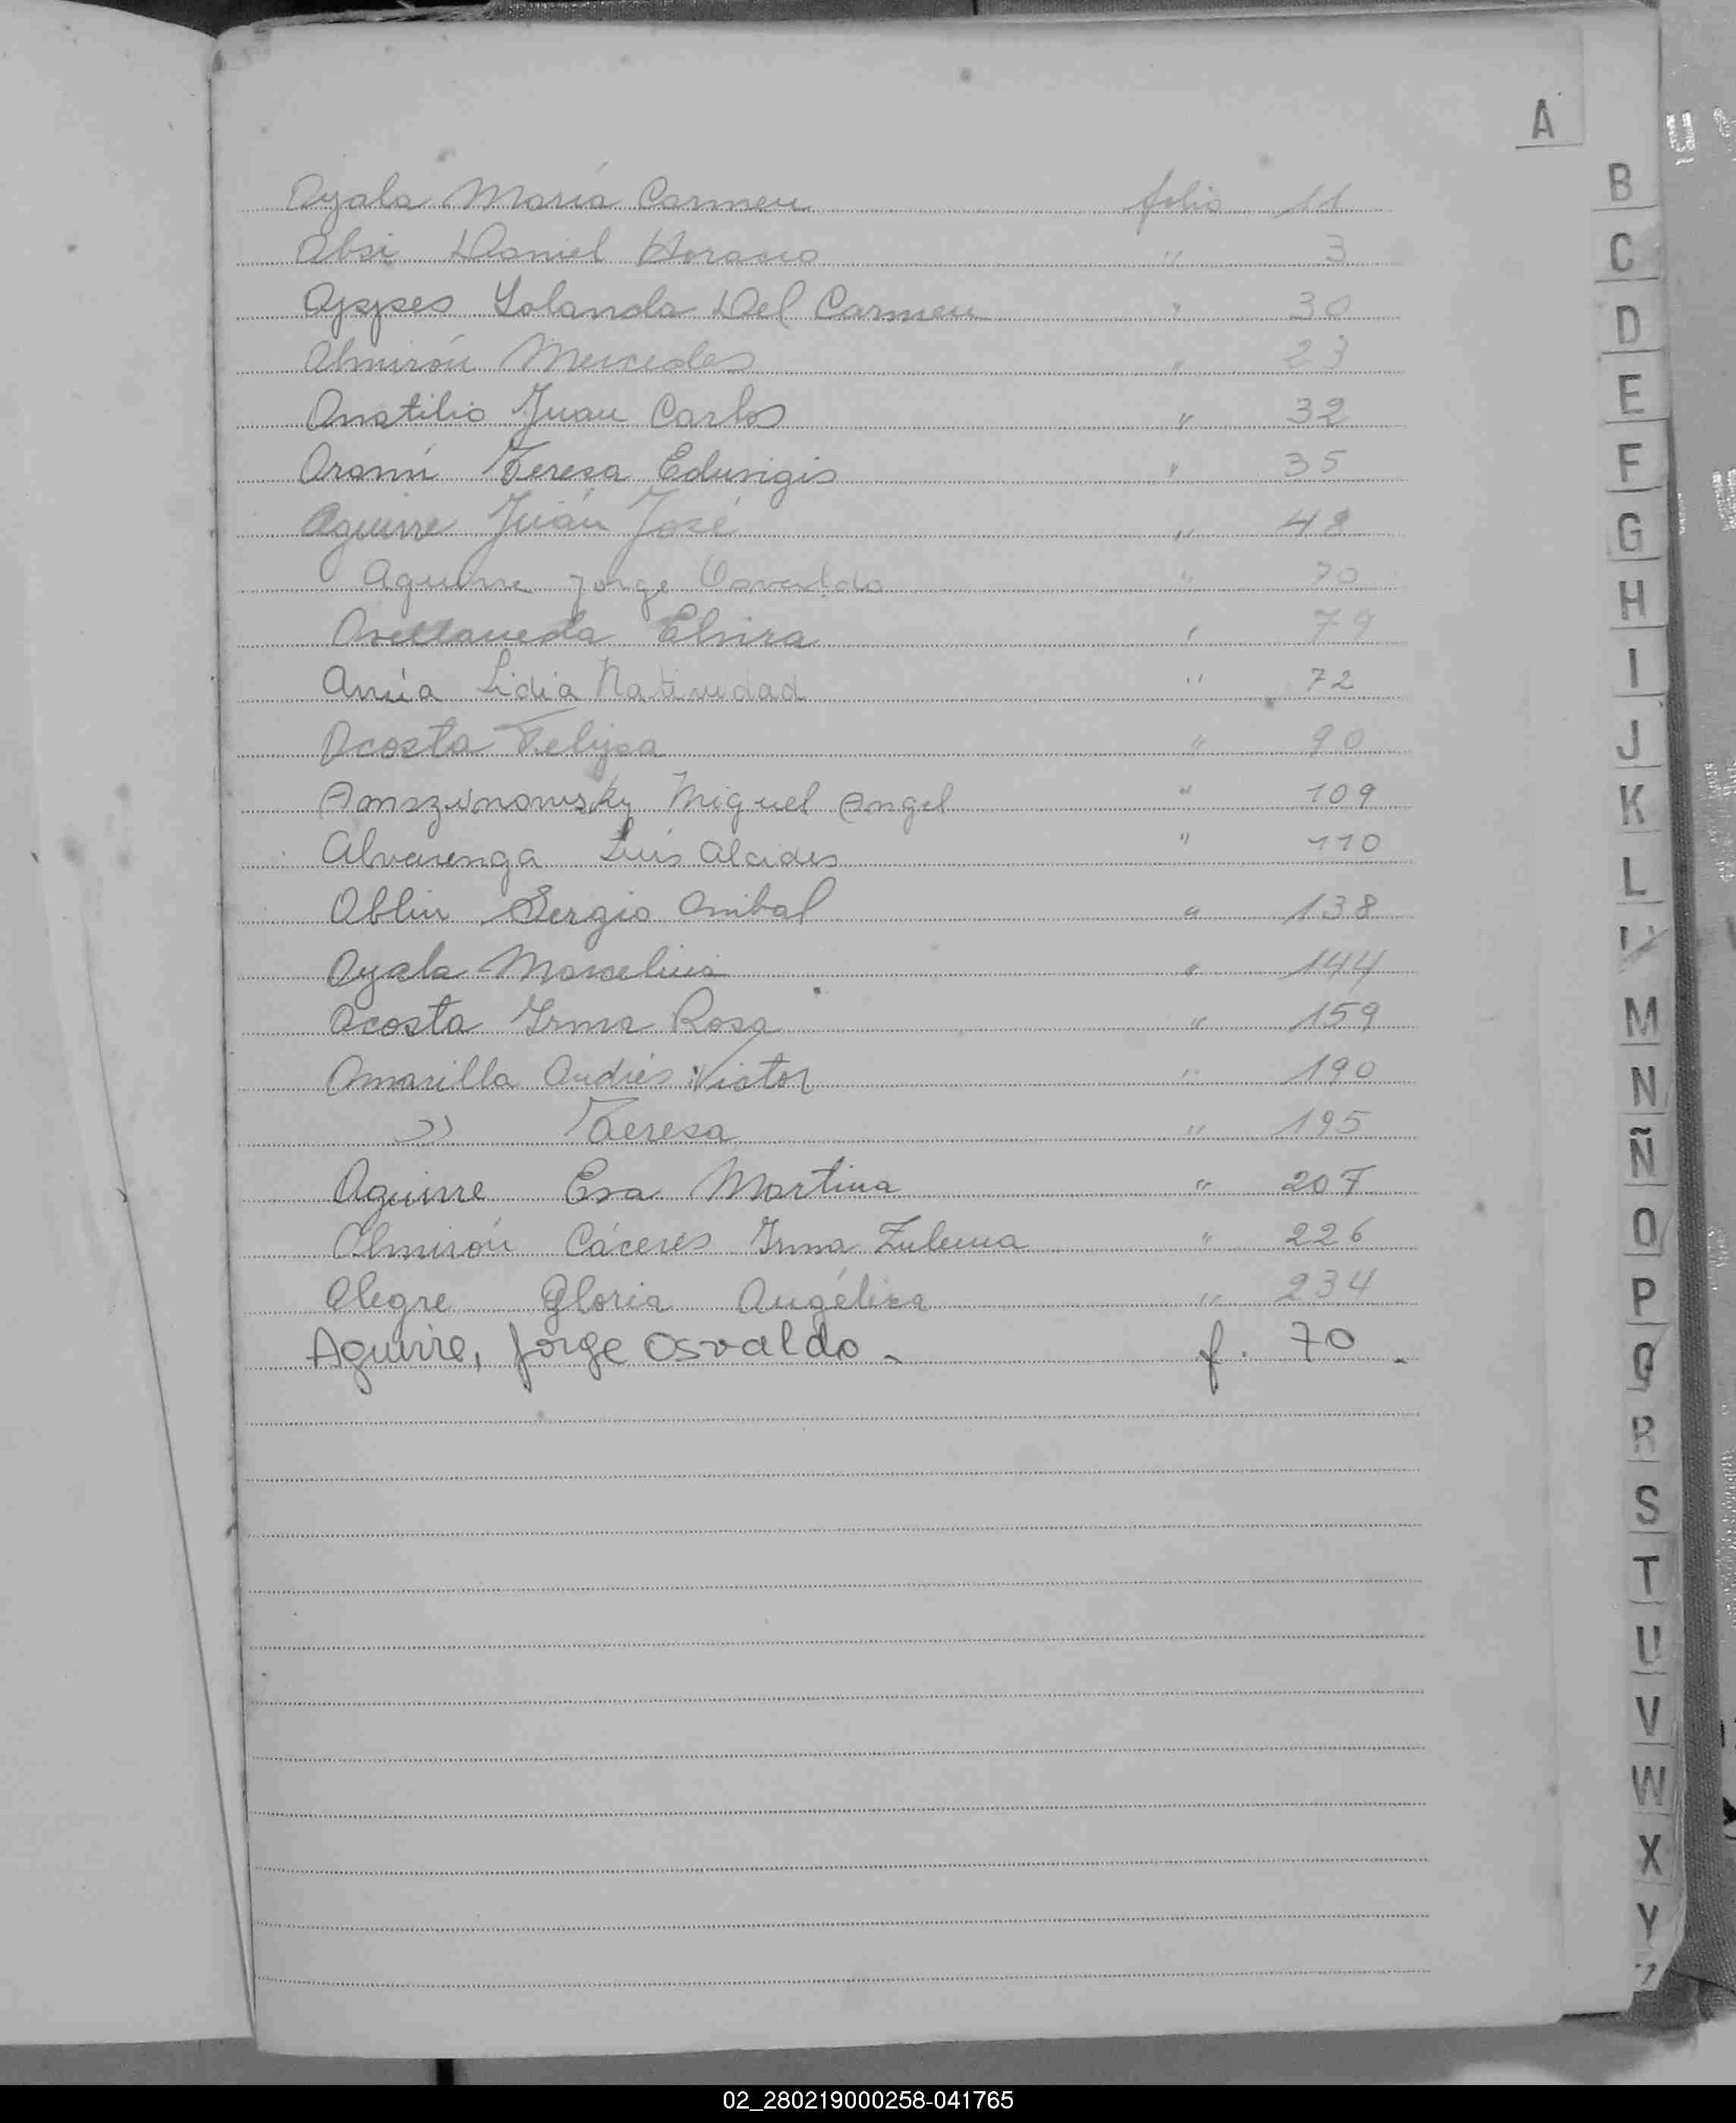 A
Ayala María Carmen folio 11
Absi Daniel Horacio " 3
Ayspes Yolanda Del Carmen " 30
Almirón Mercedes " 23
Anatilio Juan Carlos " 32
Teresa Eduvigis " 35
Aguirre Juán José " 48
Aguirre Jorge Osvaldo " 70
Avellaneda Elvira " 79
Lidia Natividad " 72
Acosta Felisa " 90
Miguel Angel " 109
Alvarenga Luis Alcides " 110
Ablin Sergio Anibal " 138
Ayala Marcelina " 144
Acosta Irma Rosa " 159
Amarilla Andrés Victor " 190
" Teresa " 195
Aguirre Eva Martina " 207
Almirón Cáceres Irma Zulema " 226
Alegre Gloria Angélica " 234
Aguirre, Jorge Osvaldo. f. 70.
B
C
D
E
F
G
H
I
J
K
L
M
N
Ñ
O
P
Q
R
S
T
U
V
W
X
Y
Z
02_280219000258-041765